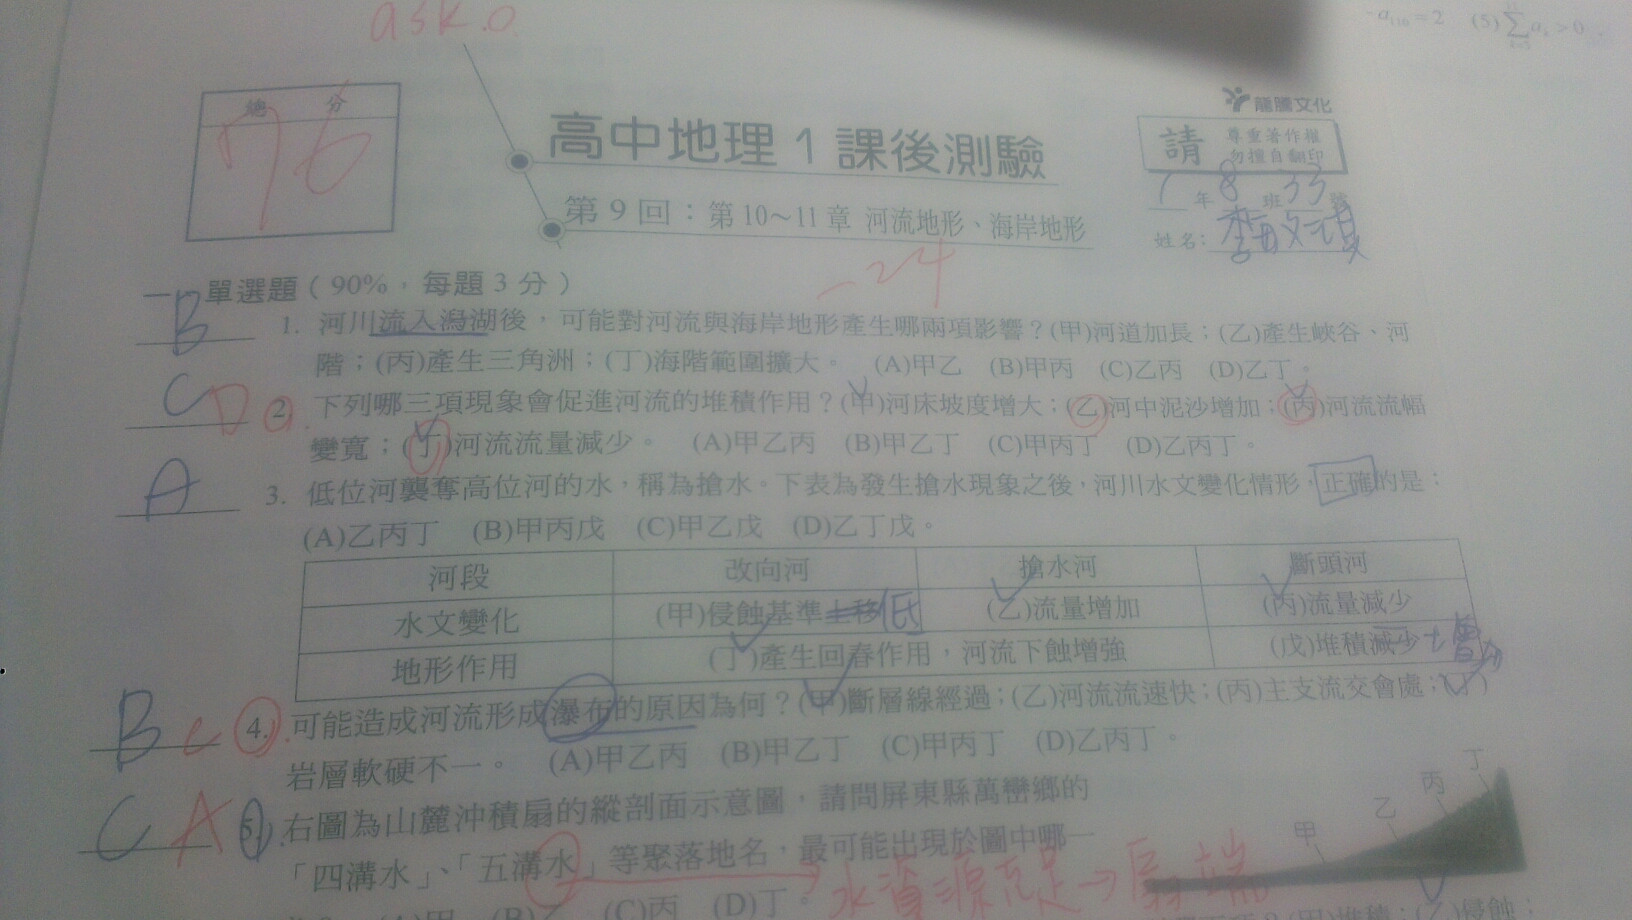 ask.
-a₁₁₆=2 (5)∑aₖ>0.
總 分
76
龍騰文化
高中地理1課後測驗
請 尊重著作權
勿擅自翻印
1 年 8 班 33 號
第9回：第10～11章 河流地形、海岸地形
姓名：
-24
一、單選題（90%，每題3分）
B 1. 河川流入潟湖後，可能對河流與海岸地形產生哪兩項影響？(甲)河道加長；(乙)產生峽谷、河
階；(丙)產生三角洲；(丁)海階範圍擴大。 (A)甲乙 (B)甲丙 (C)乙丙 (D)乙丁。
C D 2. 下列哪三項現象會促進河流的堆積作用？(甲)河床坡度增大；(乙)河中泥沙增加；(丙)河流流幅
變寬；(丁)河流流量減少。 (A)甲乙丙 (B)甲乙丁 (C)甲丙丁 (D)乙丙丁。
A 3. 低位河襲奪高位河的水，稱為搶水。下表為發生搶水現象之後，河川水文變化情形，正確的是：
(A)乙丙丁 (B)甲丙戊 (C)甲乙戊 (D)乙丁戊。
河段 改向河 搶水河 斷頭河
水文變化 (甲)侵蝕基準上移低 (乙)流量增加 (丙)流量減少
地形作用 (丁)產生回春作用，河流下蝕增強 (戊)堆積減少 增加
B C 4. 可能造成河流形成瀑布的原因為何？(甲)斷層線經過；(乙)河流流速快；(丙)主支流交會處；(丁)
岩層軟硬不一。 (A)甲乙丙 (B)甲乙丁 (C)甲丙丁 (D)乙丙丁。
C A 5. 右圖為山麓沖積扇的縱剖面示意圖，請問屏東縣萬巒鄉的
「四溝水」、「五溝水」等聚落地名，最可能出現於圖中哪一
甲 乙 丙 丁
水資源充足→扇端
(C)丙 (D)丁。
(甲)堆積；(乙)侵蝕；